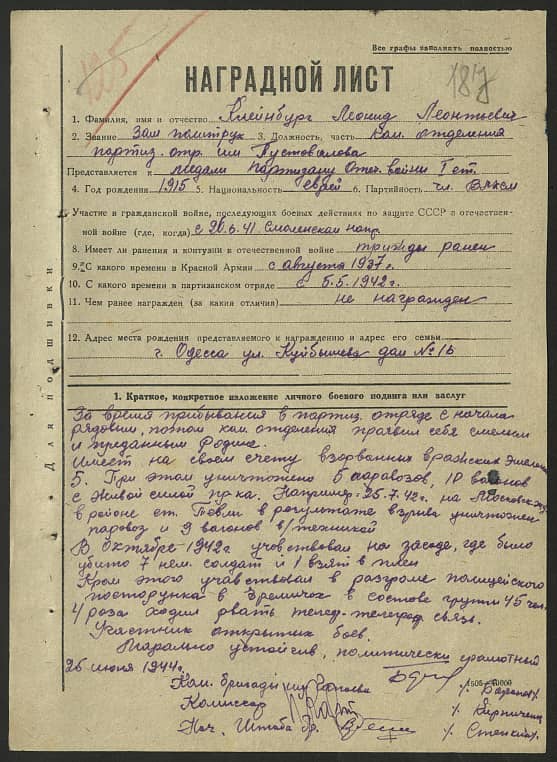 125
187
Все графы заполнять полностью
НАГРАДНОЙ ЛИСТ
1. Фамилия, имя и отчество Клейнбург Леонид Леонтьевич
2. Звание Зам политрук 3. Должность, часть Ком. отделения
партиз. отр. им Пустовалова
Представляется к медали Партизану Отеч. войны I ст.
4. Год рождения 1915 5. Национальность еврей 6. Партийность чл. ВЛКСМ
7. Участие в гражданской войне, последующих боевых действиях по защите СССР в отечествен-
ной войне (где, когда) с 20.6.41. Смоленская напр.
8. Имеет ли ранения и контузии в отечественной войне трижды ранен
9. С какого времени в Красной Армии с августа 1937 г.
10. С какого времени в партизанском отряде с 5.5.1942 г.
11. Чем ранее награжден (за какия отличия) не награжден
12. Адрес места рождения представляемого к награждению и адрес его семьи
г. Одесса ул. Куйбышева дом № 16
Для подшивки
1. Краткое, конкретное изложение личного боевого подвига или заслуг
За время прибывания в партиз. отряде с начала
рядовым, потом ком. отделения проявил себя смелым
и преданным Родине.
Имеет на своем счету взорванных вражских эшелон
5. При этом уничтожено 5 паравозов, 10 вагонов
с живой силой пр-ка. Например: 25.7.42 г. на
в районе ст. Тевли в результате взрыва уничтожен
паровоз и 9 вагонов в/техникой
В Октябре 1942 г учавствовал на засаде, где было
убито 7 нем. солдат и 1 взят в плен
Кром этого учавствовал в разгроме полицейского
постарунка в Зреличах в составе групи 45 чел.
4 роза ходил рвать телеф-телеград связь.
Участник открытих боев.
Марально устойчив, политически грамотный
26 июля 1944 г.
Ком. бригады им. Чапаева /Баранов/
1505 10000
Комиссар /Кирпиченко/
Нач. Штаба бр. /Степкин/